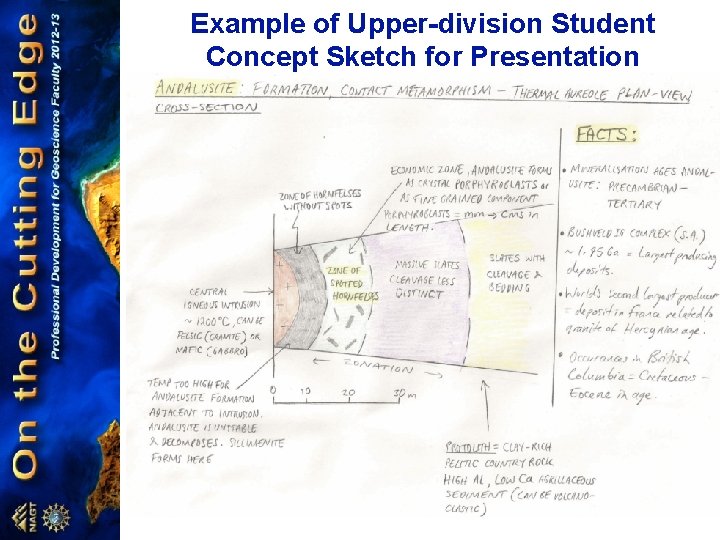 Example of Upper-division Student
Concept Sketch for Presentation
On the Cutting Edge
Professional Development for Geoscience Faculty 2012-13
NAGT
ANDALUSITE: FORMATION, CONTACT METAMORPHISM – THERMAL AUREOLE PLAN-VIEW
CROSS-SECTION
ZONE OF HORNFELSES
WITHOUT SPOTS
ECONOMIC ZONE, ANDALUSITE FORMS
AS CRYSTAL PORPHYROBLASTS OR
AS FINE GRAINED COMPONENT
PORPHYROBLASTS = mm → cms in
LENGTH.
CENTRAL
IGNEOUS INTRUSION
~ 1200°C, CAN BE
FELSIC (GRANITE) OR
MAFIC (GABBRO)
ZONE OF
SPOTTED
HORNFELSES
MASSIVE SLATES
CLEAVAGE LESS
DISTINCT
SLATES WITH
CLEAVAGE &
BEDDING
ZONATION
0 10 20 30 m
TEMP TOO HIGH FOR
ANDALUSITE FORMATION
ADJACENT TO INTRUSION.
ANDALUSITE IS UNSTABLE
& DECOMPOSES. SILLIMENITE
FORMS HERE
PROTOLITH = CLAY-RICH
PELITIC COUNTRY ROCK
HIGH AL, LOW Ca ARGILLACEOUS
SEDIMENT (CAN BE VOLCANO-
CLASTIC)
FACTS:
• MINERALISATION AGES ANDAL-
USITE: PRECAMBRIAN –
TERTIARY
• BUSHVELD IG COMPLEX (S.A.)
~ 1.95 Ga = Largest producing
deposits.
• World's second largest producer
= deposit in France related to
granite of Hercynian age.
• Occurences in British
Columbia = Cretaceous –
Eocene in age.